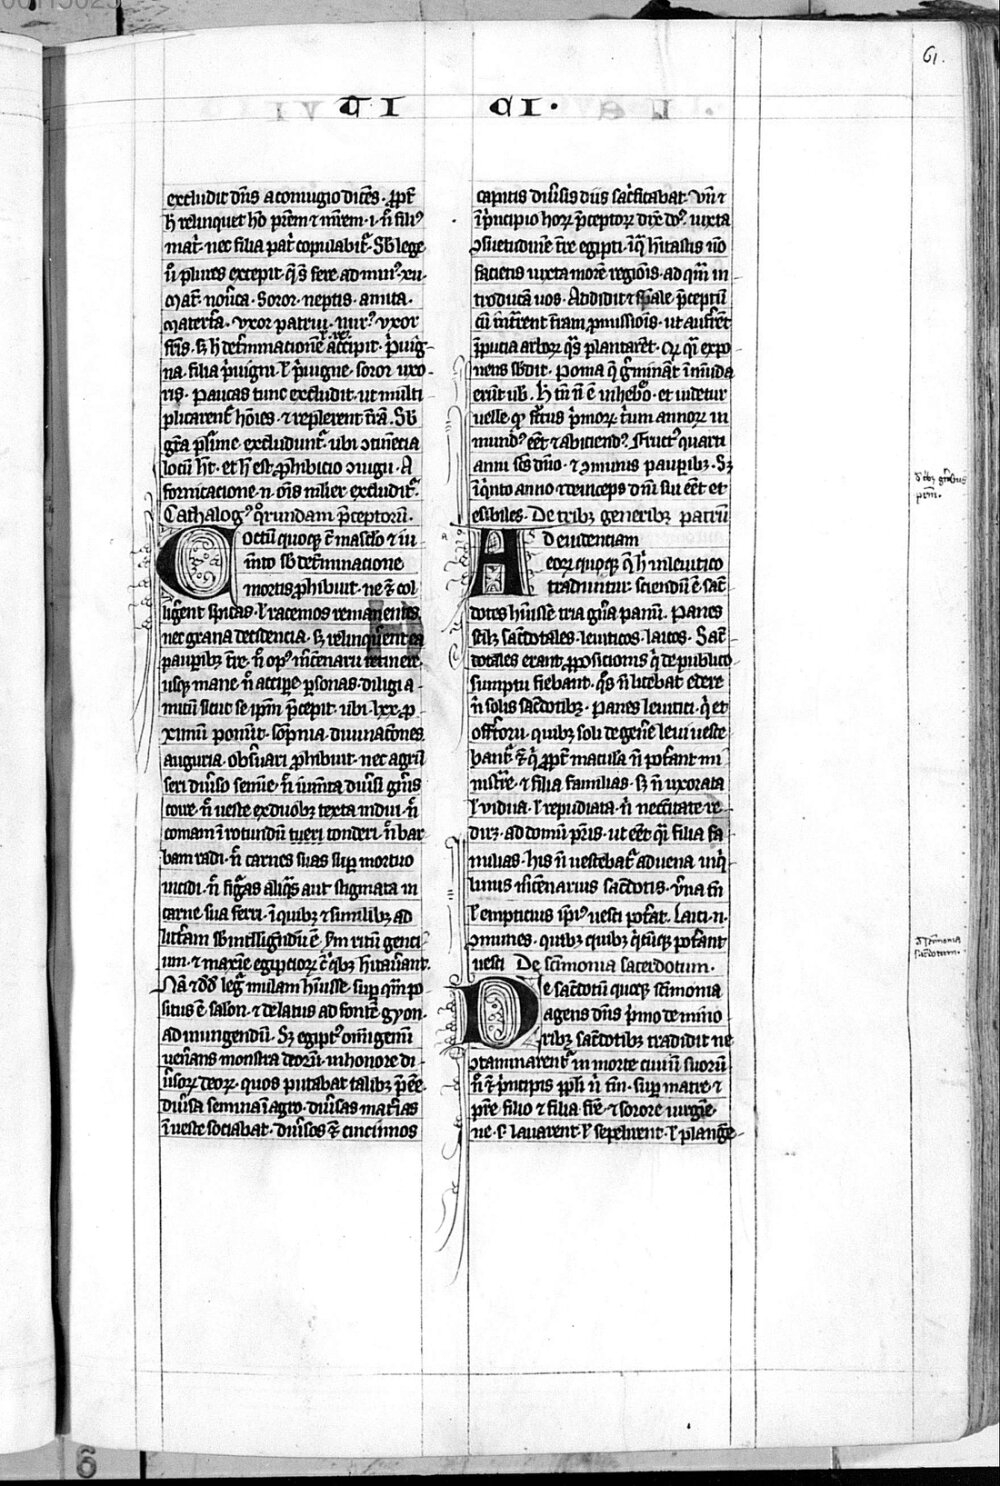 61.
TI CI.
excludit dñs a coniugio dicẽs. ꝓpt̃
h̾ relinquet hõ prẽm ⁊ mr̃em. i. ñ fili⁹
mat̾. nec filia pat̾ copulabit̃. Sb̾ lege
ũ plures excepit. q̾s fere ad mui⁹. xii.
Mat̃. nou̾ca. Soror. neptis. amita.
Matert̾a. vxor patrui. nur⁹. vxor
fr̃is. S; h̾ det̾minacionẽ accipit. p̾uig-
na. filia p̾uigni. ł p̾uigne. soror uxo-
ris. Paucas tunc excludit. ut multi
plicarent̃ hõies. ⁊ replerent t̃rã. Sb̾
gr̃a pl̾ime excludunt̃. ubi ↄtinẽcia
locũ h̾t. et h̾ est ꝓhibicio ↄiugii. A
fornicacione. n. oĩs mlier excludit̃.
Cathalog⁹ q̾rundam p̃ceptorũ.
Coctũ quoqꝫ ẽ masclo ⁊ iu
mñto sb̾ det̾minacione
mortis ꝓhibuit. ne ⁊̃ col
lig̾ent spicas. ł racemos remanentes.
nec grana decidencia. s; relinquẽnt ea
pauꝑibꝫ t̃re. ñ op⁹ mc̾enarii retinere.
usqꝫ mane ñ accipe ꝑsonas. diligi a-
micũ sicut se ip̃m p̃cepit. ubi lxx. ꝓ
ximũ ponũt. Sõpnia. diuinatiões
auguria. obs̾uari ꝓhibuit. nec agrũ
seri diu̾so semĩe. ñ iumñta diu̾si gñis
coire. ñ ueste ex duobꝫ texta indui. ñ
comam ĩ rotundũ tueri tonderi. ñ bar
bam radi. ñ carnes suas suꝑ mortuo
incidi. ñ fig̾as aliq̾s aut stigmata in
carne sua ferri. ĩ quibꝫ ⁊ similibꝫ ad
litt̾am sb̾intelligẽdũ ẽ. p̃m ritũ genti
um. ⁊ maxĩe egipcioꝝ ĩ q̾bꝫ h̾itau̾ant.
Nã ⁊ dd̾ leg̃ mulam h̾uisse. suꝑ qm̃ po
situs ẽ salon. ⁊ delatus ad fontẽ gyon.
ad inungendũ. S; egipt⁹ om̃igenũ
uen̾ans monstra deorũ. in honore di-
u̾soꝝ deoꝝ. quos putabat talibꝫ p̃eẽ.
diu̾sa semina ĩ agro. diu̾sas mat̾ias
ĩ ueste sociabat. diu̾sos ⁊̃ cincinnos
capitis diu̾sis diis sac̾ficabat. Vñ ⁊
ĩ p̾ncipio hoꝝ p̃ceptoꝝ dix̃ do⁹. iuxta
ↄsuetudinẽ t̃re egipti. ĩ q̃ h̾itastis ñ
facietis iuxta morẽ regiõis. ad qm̃ in
troducã uos. Addidit ⁊ sp̃ale p̃ceptũ
cũ int̾rent t̃ram ꝓmissiõis. ut aufer̃ẽt
p̾pucia arboꝝ q̾s plantarẽt. Qr̃ q̃ expo
nens sb̾dit. Poma q̃ g̾minãt inmũda
erũt uob̾. H̾ tñ ñ ẽ in heb̾o. et uidetur
uelle qꝫ fc̾tus p̾moꝝ triũ annoꝝ in
mund⁹ eẽt ⁊ abiciend⁹. Fruct⁹ quarti
anni sc̾s dño. ⁊ ↄmunis pauꝑibꝫ. S;
ĩ q̾nto anno ⁊ deinceps dñi sui eẽt et
esibiles. De tribꝫ generibꝫ panũ
Ad euidenciam
eoꝝ quoqꝫ q̃ h̾ in leuitico
traduntur. sciendũ ẽ sac̾
dotes h̾uisse tria gñ̃a panũ. Panes
scil̾ꝫ sac̾dotales. leuiticos. laicos. Sac̾
dotales erant ꝓposicionis q̾ de publico
sumptu fiebant. q̾s ñ licebat edere
ñ solis sac̾dotibꝫ. Panes leuitici. q̾ et
off̾torii. quibꝫ soli de gen̾e leui uesce
bant̃. ⁊̃ q̾ ꝓpt̃ macula ñ pot̾ant mi
nistr̃e. ⁊ filia familias. s; ñ uxorata
ł uidua. ł repudiata. ñ nec̾citate re
dir; ad domũ pr̃is. ut eẽt q̃i filia fa
milias. His ñ uescebat̃ aduena inq̾
linus mc̾enarius sac̾dotis. v̾na tñ
ł empticius ip̃i⁹ uesci pot̾at. Laici. n.
ↄmunes. quibꝫ quibꝫ q̾cũqꝫ pot̾ant
uesci De sc̃imonia sacerdotum.
De sac̾dotũ quoqꝫ sc̃imonia
agens dñs p̾mo de mĩno
ribꝫ sac̾dotibꝫ tradidit ne
ↄtaminarent̃ in morte ciuiũ suorũ
ñ ⁊̃ p̾ncipis pp̃li ñ tm̃. suꝑ matre. ⁊
pr̃e. filio ⁊ filia. fr̃e. ⁊ sorore uirgĩe.
ne. s. lauarent. ł sepelirent. ł plang̾e-
d̾ t̾bꝫ gñ̾ibus
panũ.
d̾ sc̃imonia
sac̾dotum.
6